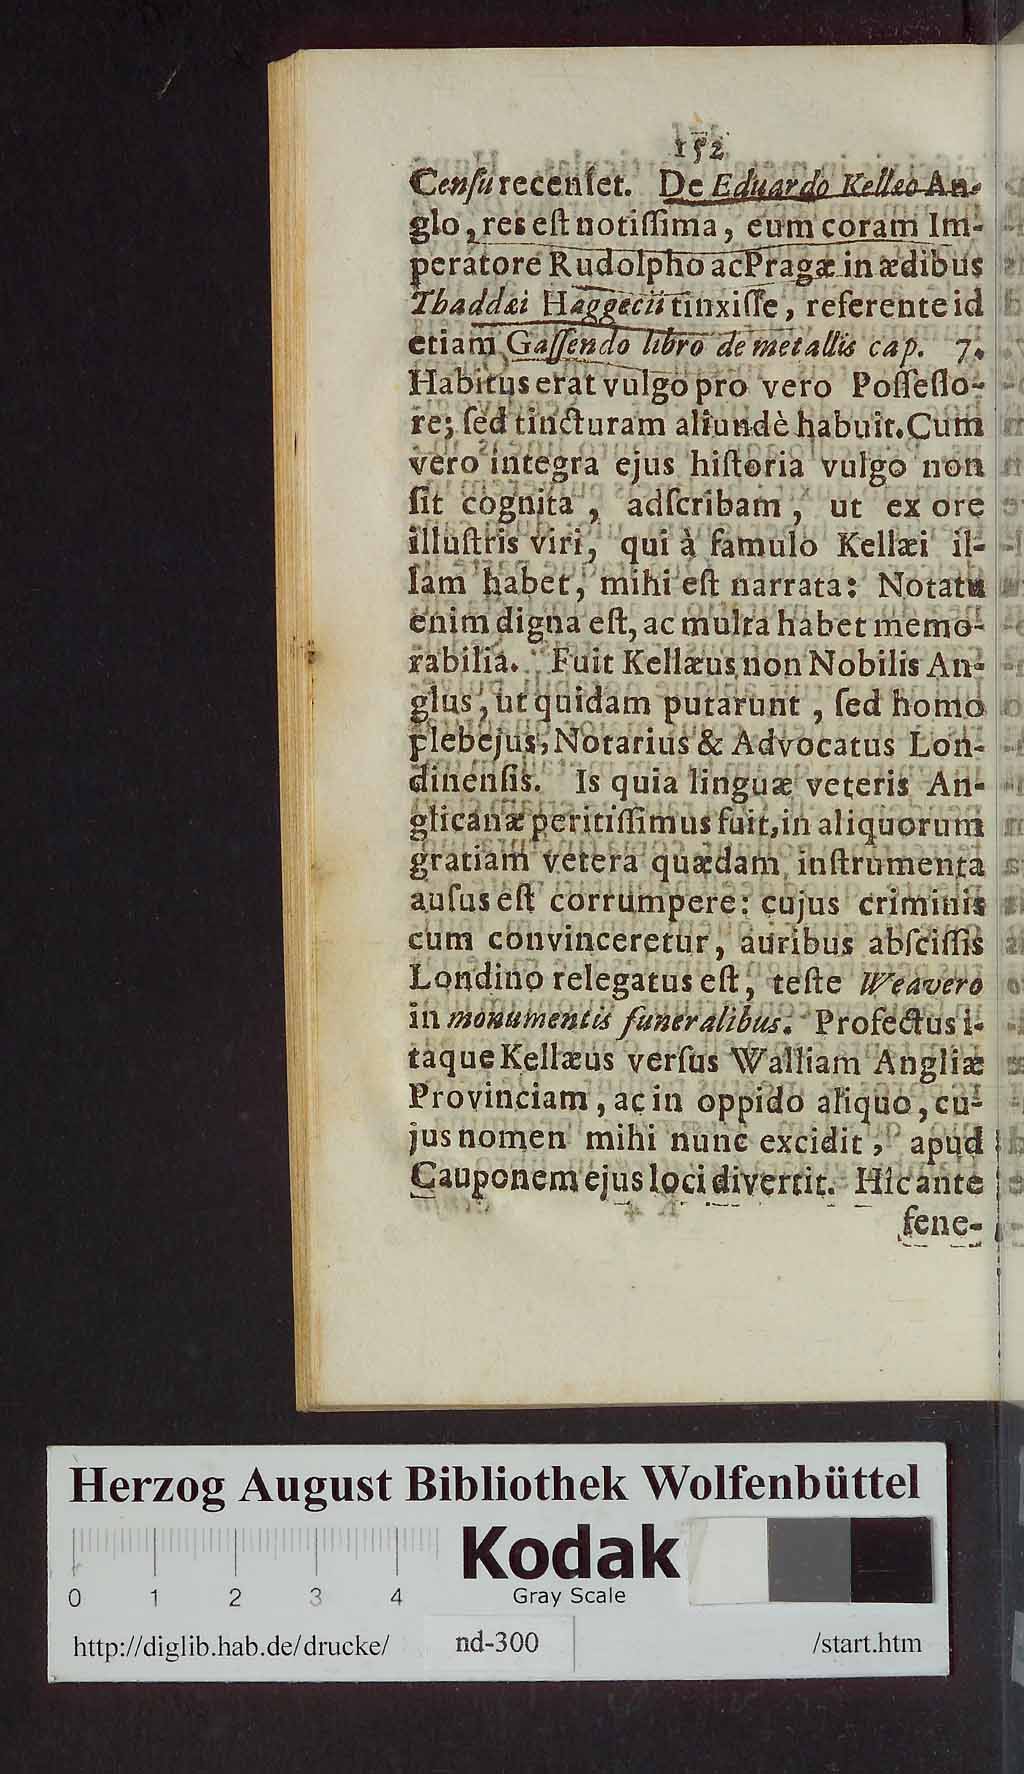 152
Censu recenſet. De Eduardo Kelleo An-
glo, res eſt notiſſima, eum coram Im-
peratore Rudolpho ac Pragæ in ædibus
Thaddæi Haggecii tinxiſſe, referente id
etiam Gaſſendo libro de metallis cap. 7.
Habitus erat vulgo pro vero Poſſeſſo-
re; ſed tincturam aliundè habuit. Cum
vero integra ejus hiſtoria vulgo non
ſit cognita, adſcribam, ut ex ore
illuſtris viri, qui à famulo Kellæi il-
lam habet, mihi eſt narrata: Notatu
enim digna eſt, ac multa habet memo-
rabilia. Fuit Kellæus non Nobilis An-
glus, ut quidam putarunt, ſed homo
plebejus, Notarius & Advocatus Lon-
dinenſis. Is quia linguæ veteris An-
glicanæ peritiſſimus fuit, in aliquorum
gratiam vetera quædam inſtrumenta
auſus eſt corrumpere: cujus criminis
cum convinceretur, auribus abſciſſis
Londino relegatus eſt, teſte Weavero
in monumentis funeralibus. Profectus i-
taque Kellæus verſus Walliam Angliæ
Provinciam, ac in oppido aliquo, cu-
jus nomen mihi nunc excidit, apud
Cauponem ejus loci divertit. Hîc ante
fene-
Herzog August Bibliothek Wolfenbüttel
Kodak
Gray Scale
0 1 2 3 4
http://diglib.hab.de/drucke/ nd-300 /start.htm